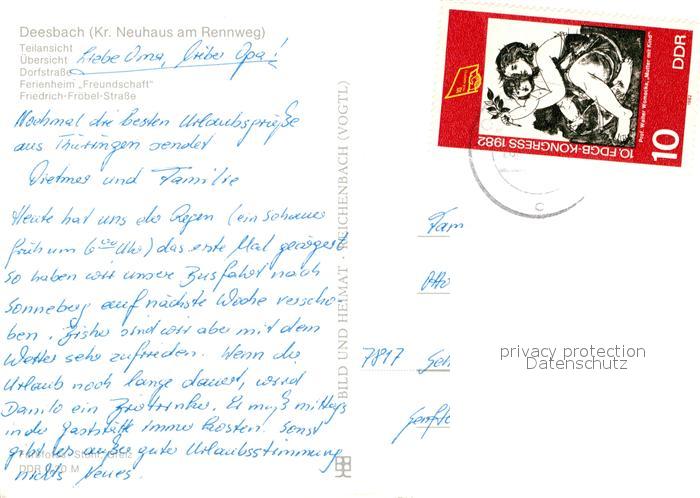 Deesbach (Kr. Neuhaus am Rennweg)
Teilansicht
Übersicht
Dorfstraße
Ferienheim „Freundschaft"
Friedrich-Fröbel-Straße
Liebe Oma, lieber Opa!
Nochmal die besten Urlaubsgrüße
aus Thüringen sendet
Dietmar und Familie
Heute hat uns der Regen (ein Schauer
früh um 6 00 Uhr) das erste Mal geärgert.
So haben wir unsere Busfahrt nach
Sonneberg auf nächste Woche verscho-
ben. Bisher sind wir aber mit dem
Wetter sehr zufrieden. Wenn der
Urlaub noch lange dauert, wird
Danilo ein Biertrinker. Er muß mittags
in der Gaststätte immer kosten. Sonst
gibt es außer guter Urlaubsstimmung
nichts Neues.
DDR M
BILD UND HEIMAT · REICHENBACH (VOGTL)
10. FDGB-KONGRESS 1982
Prof. Walter Womacka, „Mutter mit Kind"
DDR
10
1982
Fam
Otto
7817
privacy protection
Datenschutz